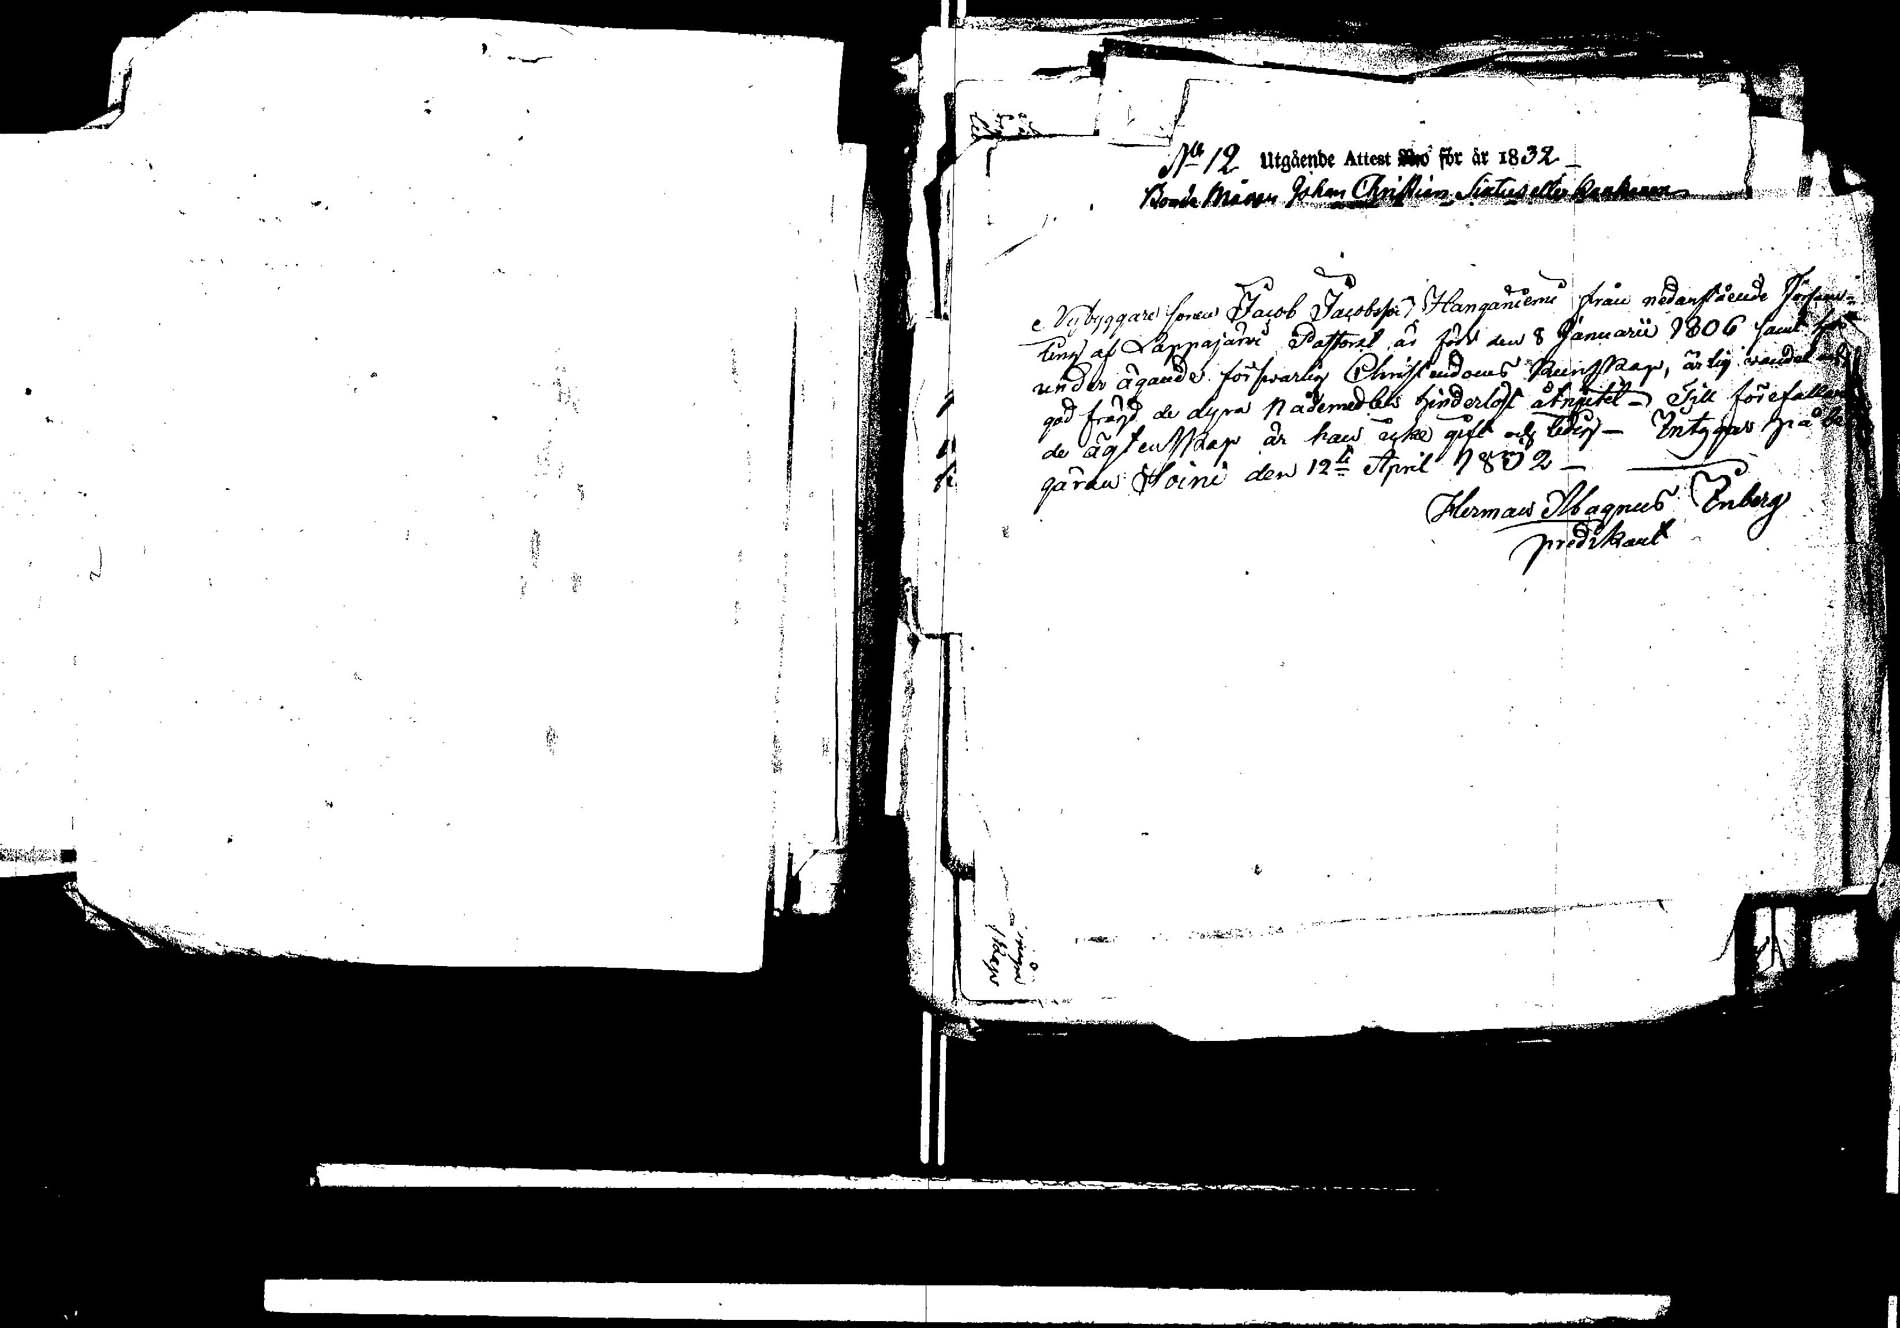 No 12 Utgående Attest för år 1832
Bonde Måger Johan Christian Sixtus eller
Nybyggare sonen Jacob Jacobsson Hanganiemi från nedanstående Försam=
ling af Lappajärvi Pastorat är född den 8 Januarii 1806 samt
under ägande försvarlig Christendoms kunskap, ärlig vandel och
god frägd de dyra Nådemedlen hinderlöst åtnjutit – Till förefallan
de ägtenskap är han icke gift och ledig – Intygas på be
gäran Soini den 12te April 1832 –
Herman Magnus Enberg
predikant